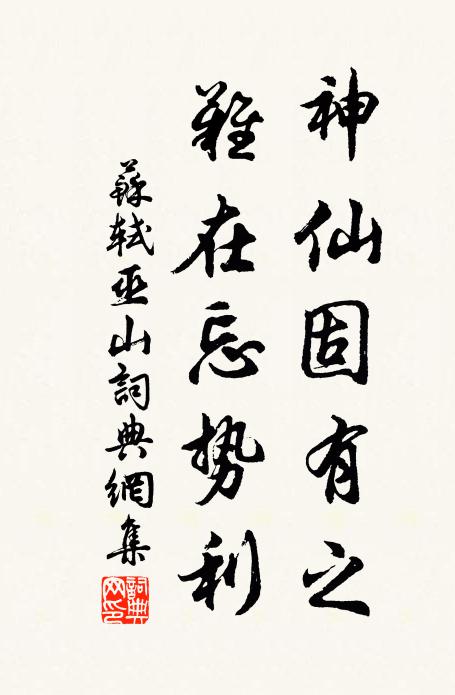 神仙固有之
難在忘势利
蘇軾巫山詞典網集
詞典網印